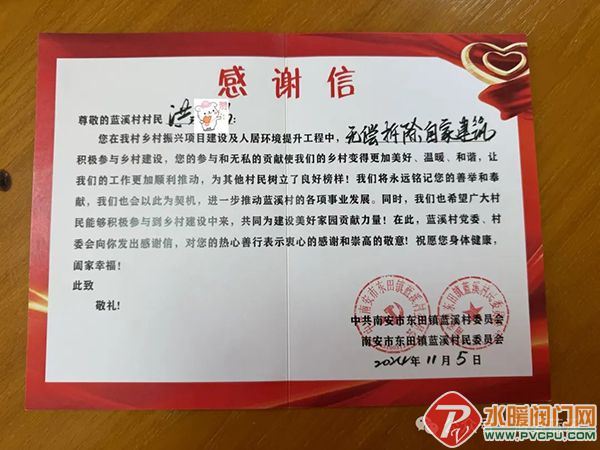 感谢信
尊敬的蓝溪村村民 洪
您在我村乡村振兴项目建设及人居环境提升工程中，无偿拆除自家建筑
积极参与乡村建设，您的参与和无私的贡献使我们的乡村变得更加美好、温暖、和谐，让
我们的工作更加顺利推动，为其他村民树立了良好榜样！我们将永远铭记您的善举和奉
献，我们也会以此为契机，进一步推动蓝溪村的各项事业发展。同时，我们也希望广大村
民能够积极参与到乡村建设中来，共同为建设美好家园贡献力量！在此，蓝溪村党委、村
委会向你发出感谢信，对您的热心善行表示衷心的感谢和崇高的敬意！祝愿您身体健康，
阖家幸福！
此致
敬礼！
中共南安市东田镇蓝溪村委员会
南安市东田镇蓝溪村民委员会
2024年11月5日
水暖阀门网
WWW.PVCPU.COM